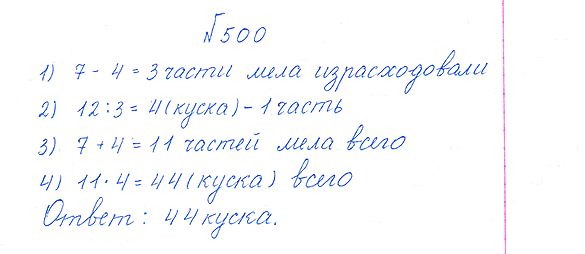 №500
1) 7 - 4 = 3 части мела израсходовали
2) 12 : 3 = 4 (куска) - 1 часть
3) 7 + 4 = 11 частей мела всего
4) 11 · 4 = 44 (куска) всего
Ответ: 44 куска.